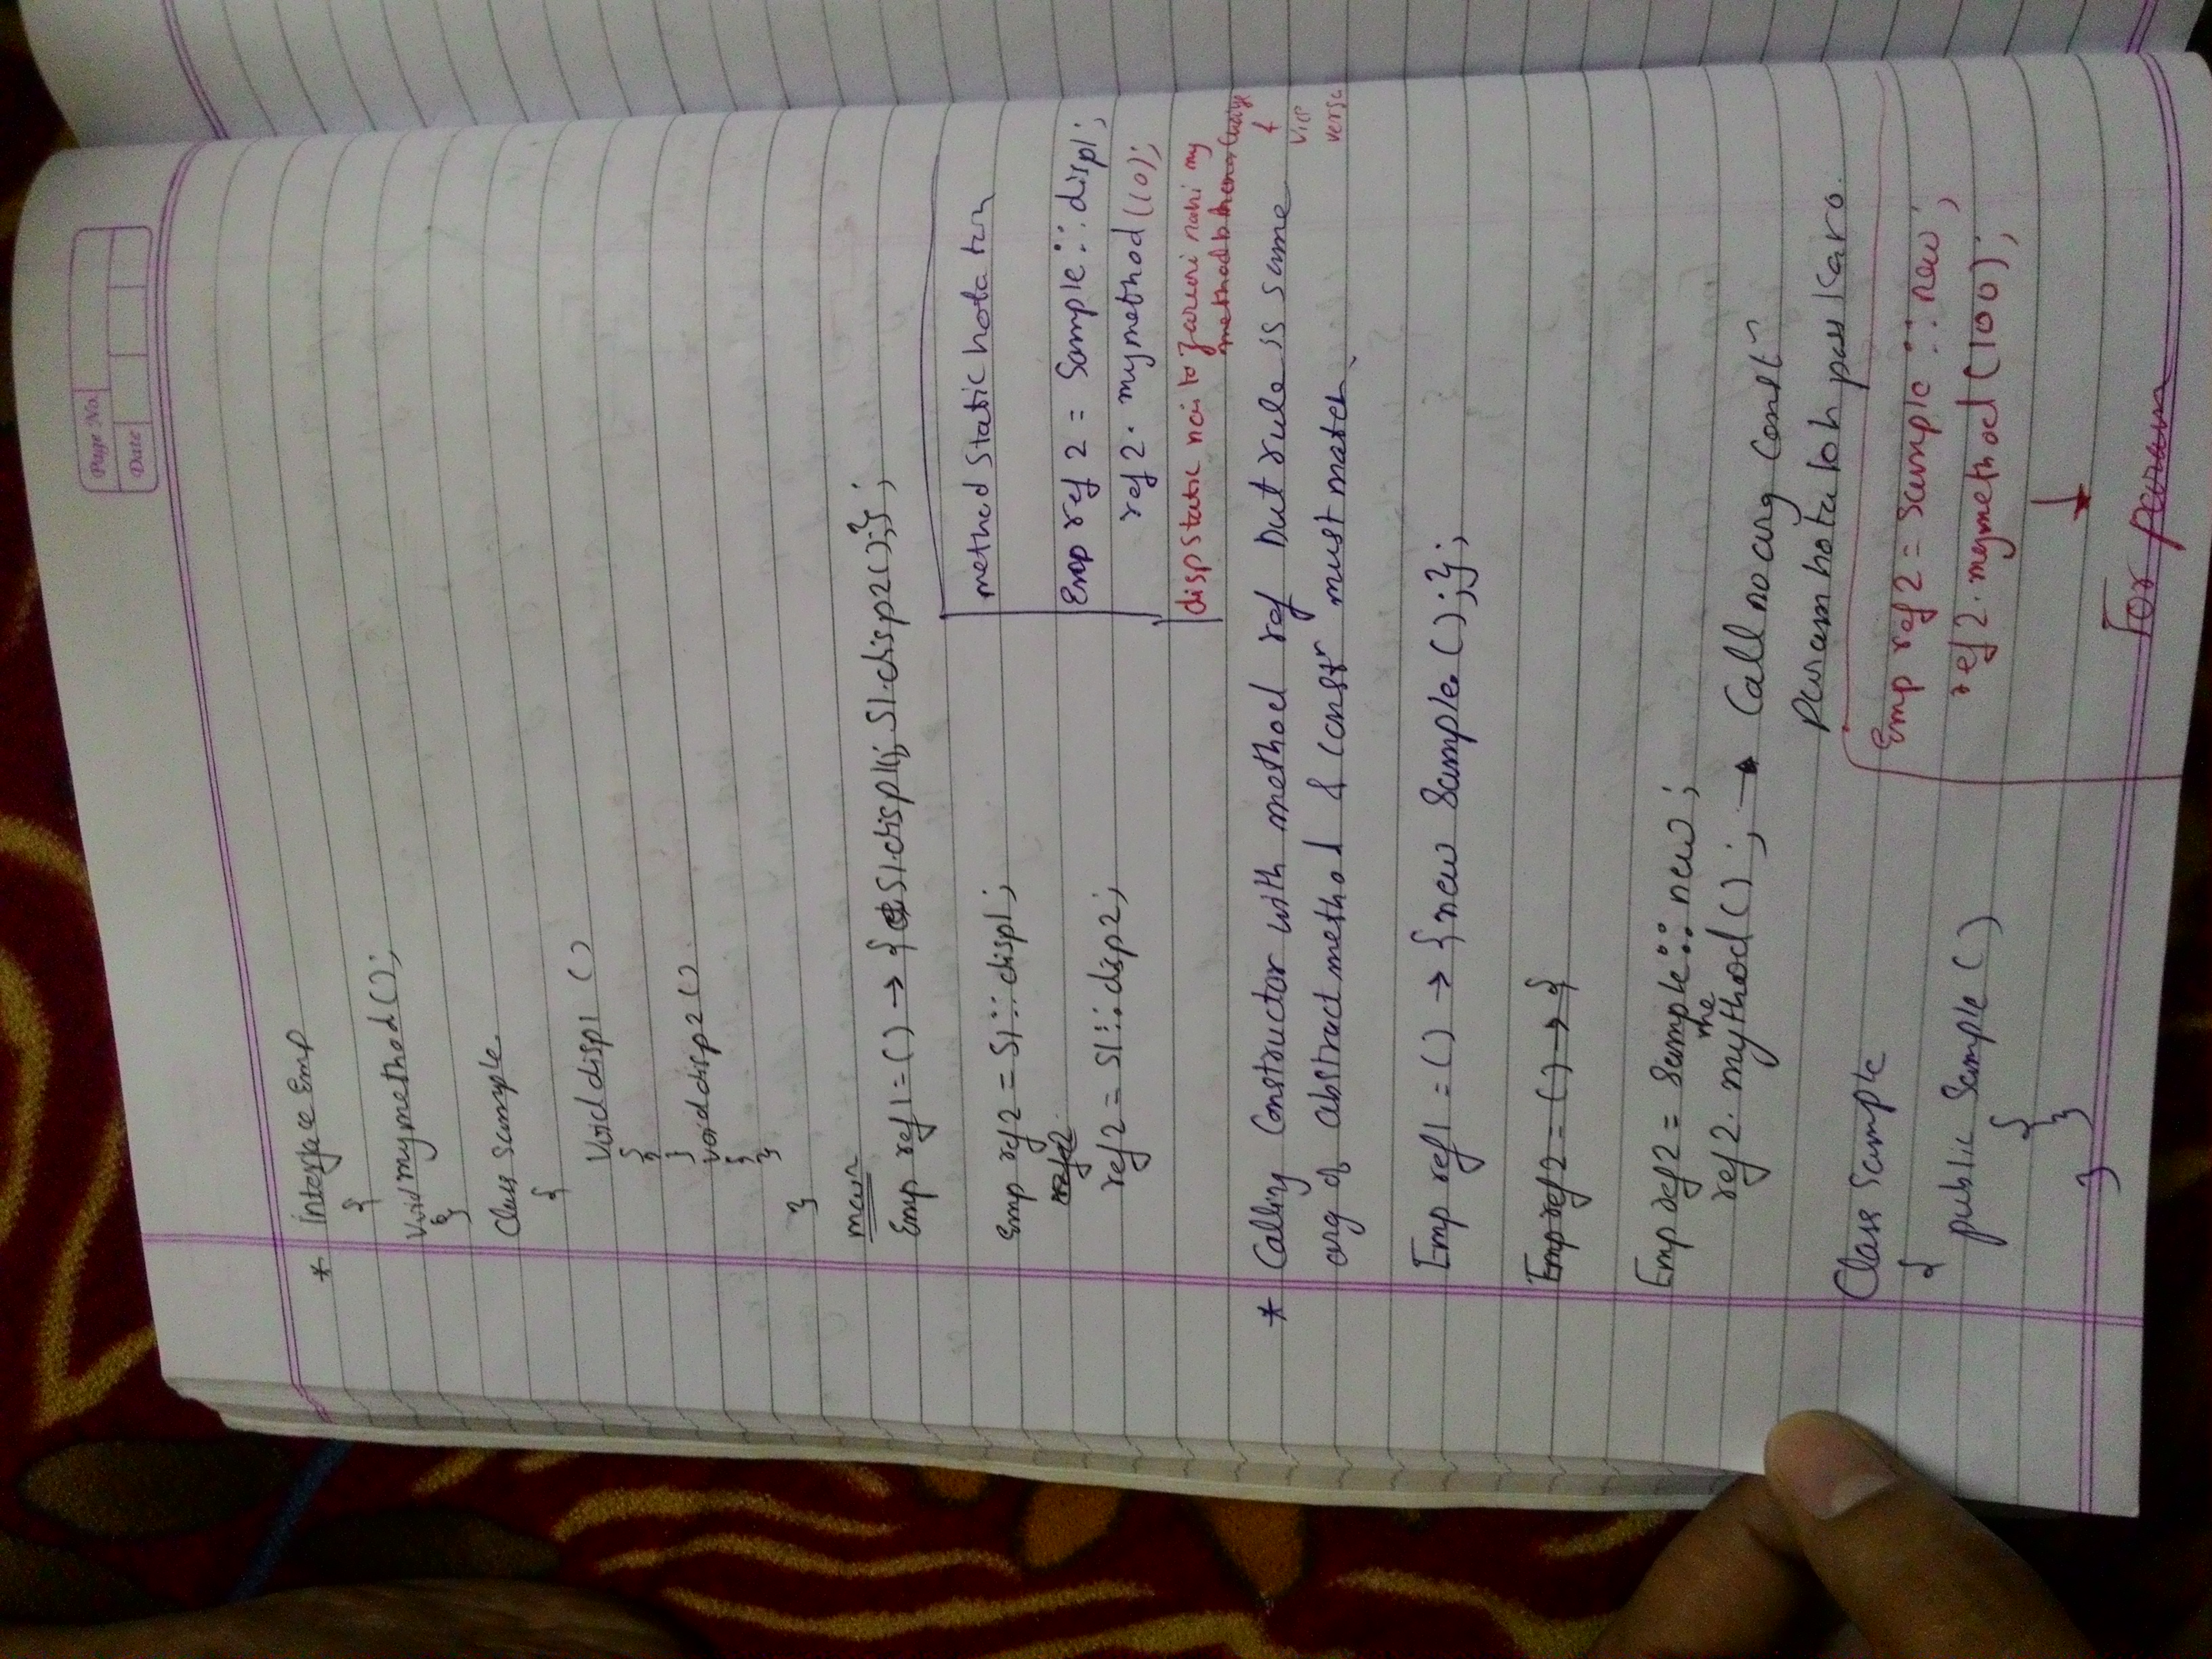 Page No.
Date
* interface Emp
{
void mymethod();
}
Class Sample
{
void disp1 ()
{
}
void disp2 ()
{
}
}
main
Emp ref1 = () → { S1.disp1(); S1.disp2(); };
Emp ref2 = S1 :: disp1;
ref2 = S1 :: disp2;
method static hota toh
Emp ref 2 = Sample :: disp1;
ref 2. mymethod (10);
disp static nai to zaruri nahi my
method b
&
vice
versa
* Calling Constructor with method ref but rule is same
arg of abstract method & constr must match
Emp ref1 = () → { new Sample (); };
Emp ref2 = () → {
Emp ref2 = Sample :: new;
ref2. mymethod (); → Call no arg const
param hota toh pass karo.
Class Sample
{
public Sample ()
{
}
}
Emp ref2 = Sample :: new;
ref2. mymethod (100);
For param